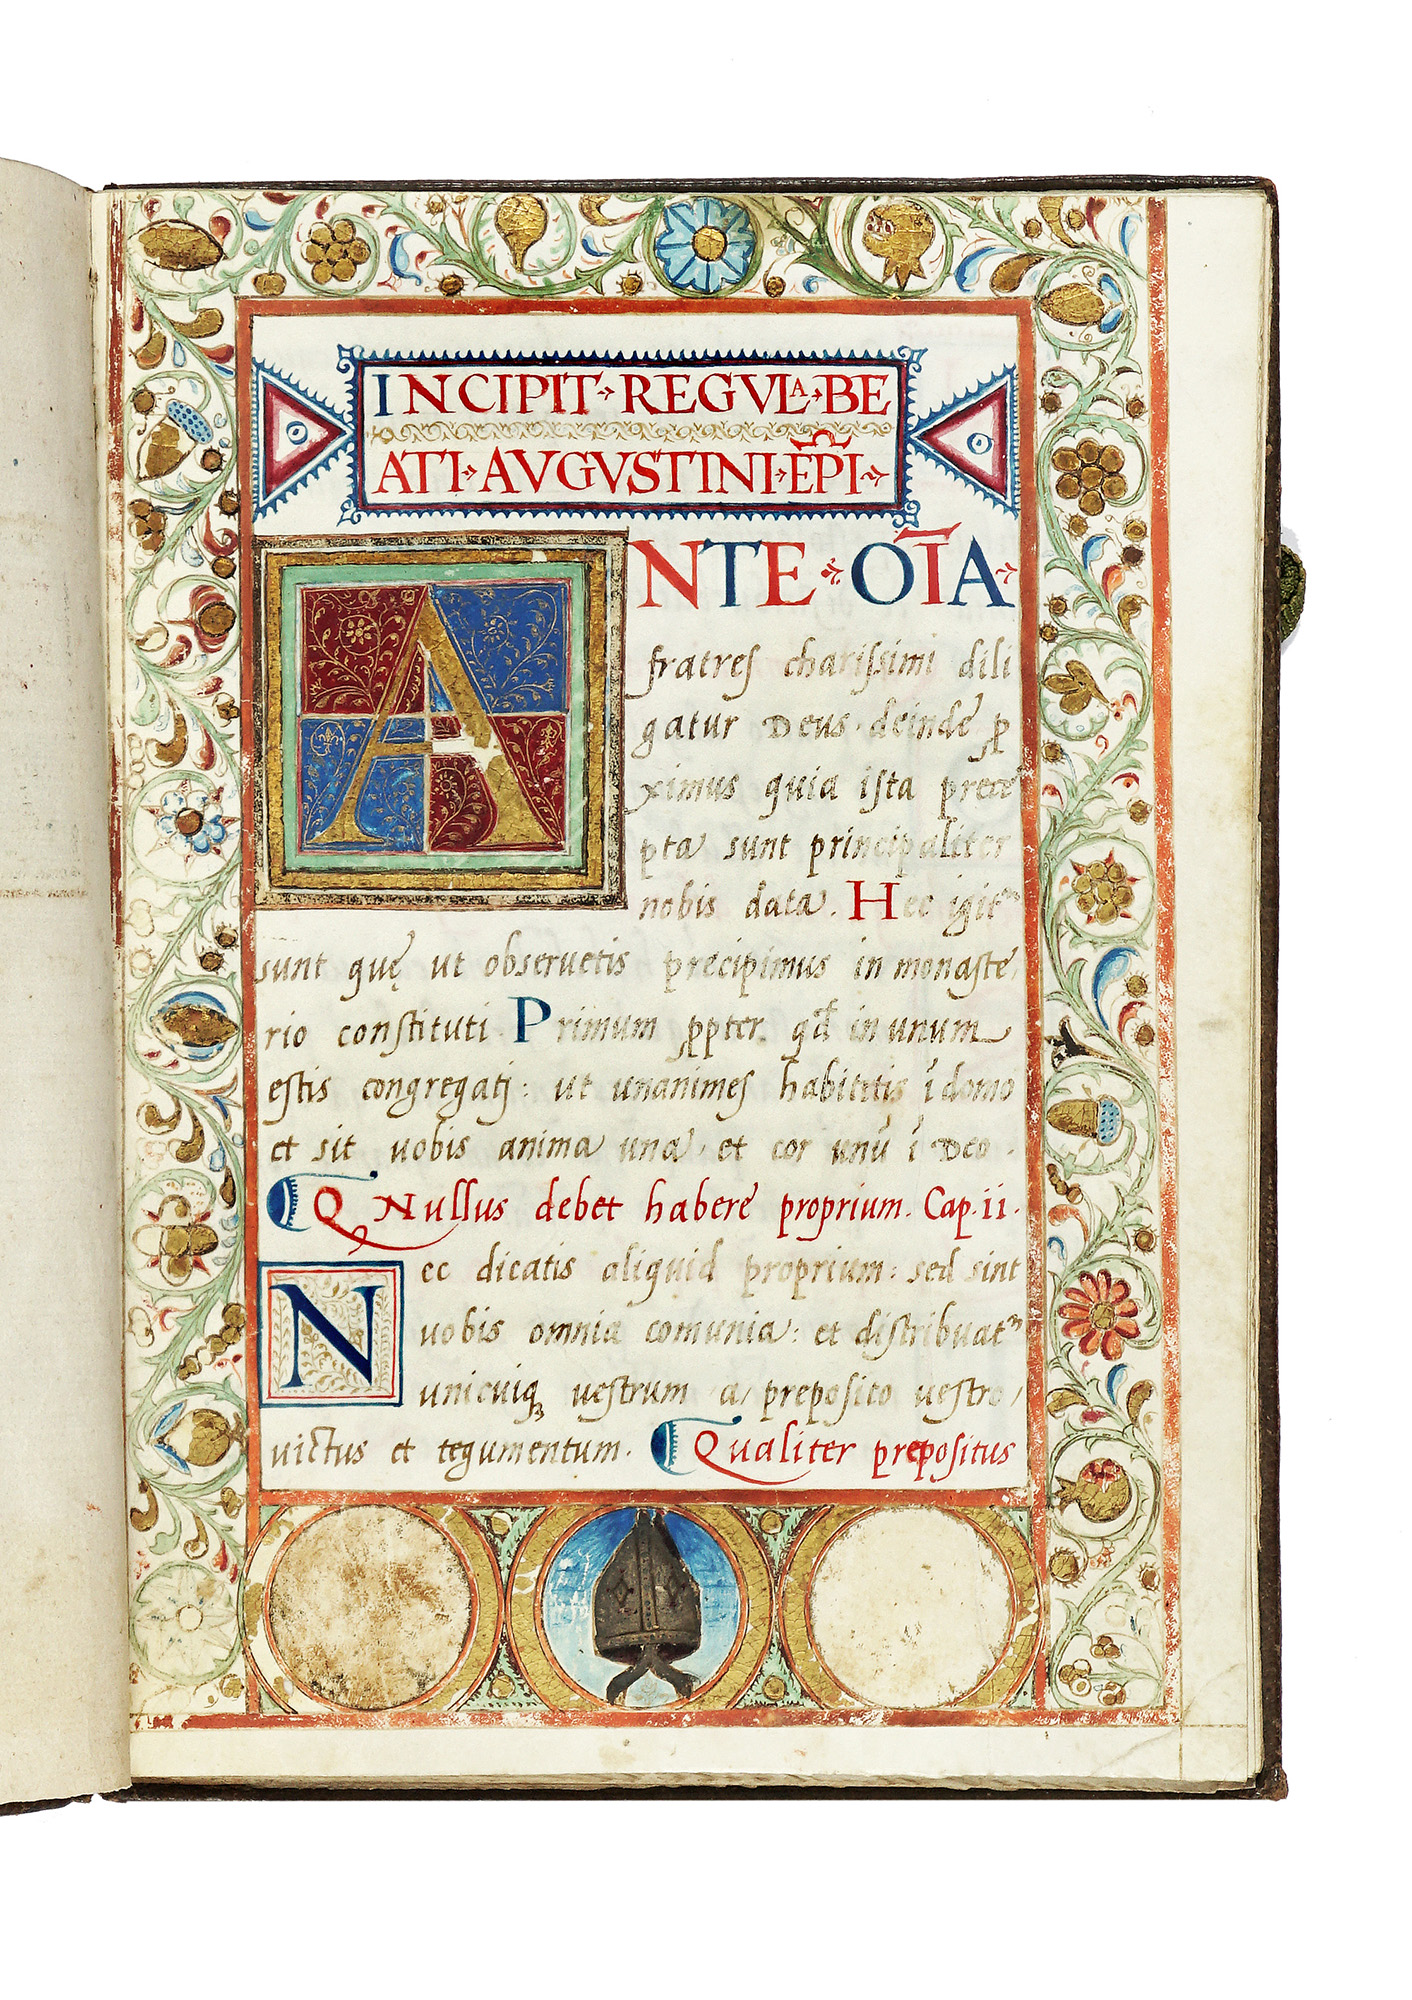 INCIPIT · REGVLA · BE
ATI · AVGVSTINI · EP̄I ·
ANTE · OĪA ·
fratres charissimi dili
gatur Deus · deinde p
ximus quia ista prece
pta sunt principaliter
nobis data. Hec igit
sunt quę ut obseruetis precipimus in monaste,
rio constituti. Primum ppter qd in unum
estis congregatj: ut unanimes habitetis ī domo
et sit uobis anima una, et cor unū ī Deo.
Q Nullus debet habere proprium. Cap. ii.
Nec dicatis aliquid proprium: sed sint
uobis omnia comunia: et distribuat
unicuiq; uestrum a preposito uestro,
uictus et tegumentum. Qualiter prepositus